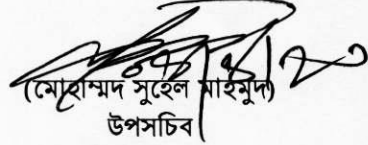 (মোহাম্মদ সুহেল মাহমুদ)
উপসচিব